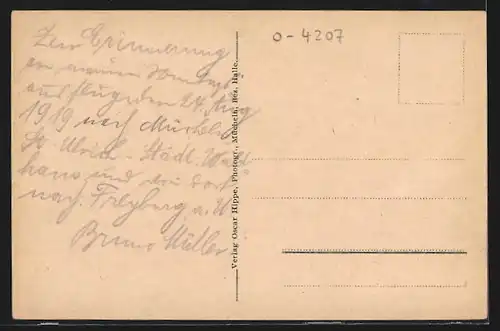 Zur Erinnerung
an meinen Sonntags
ausflug den 24. Aug
1919 nach Mücheln
St. Ulrich - Städt. Wald
haus und von dort
nach Freyberg a. U.
Bruno Müller
Verlag Oscar Hippe, Photogr., Mücheln, Bez. Halle.
0-4207